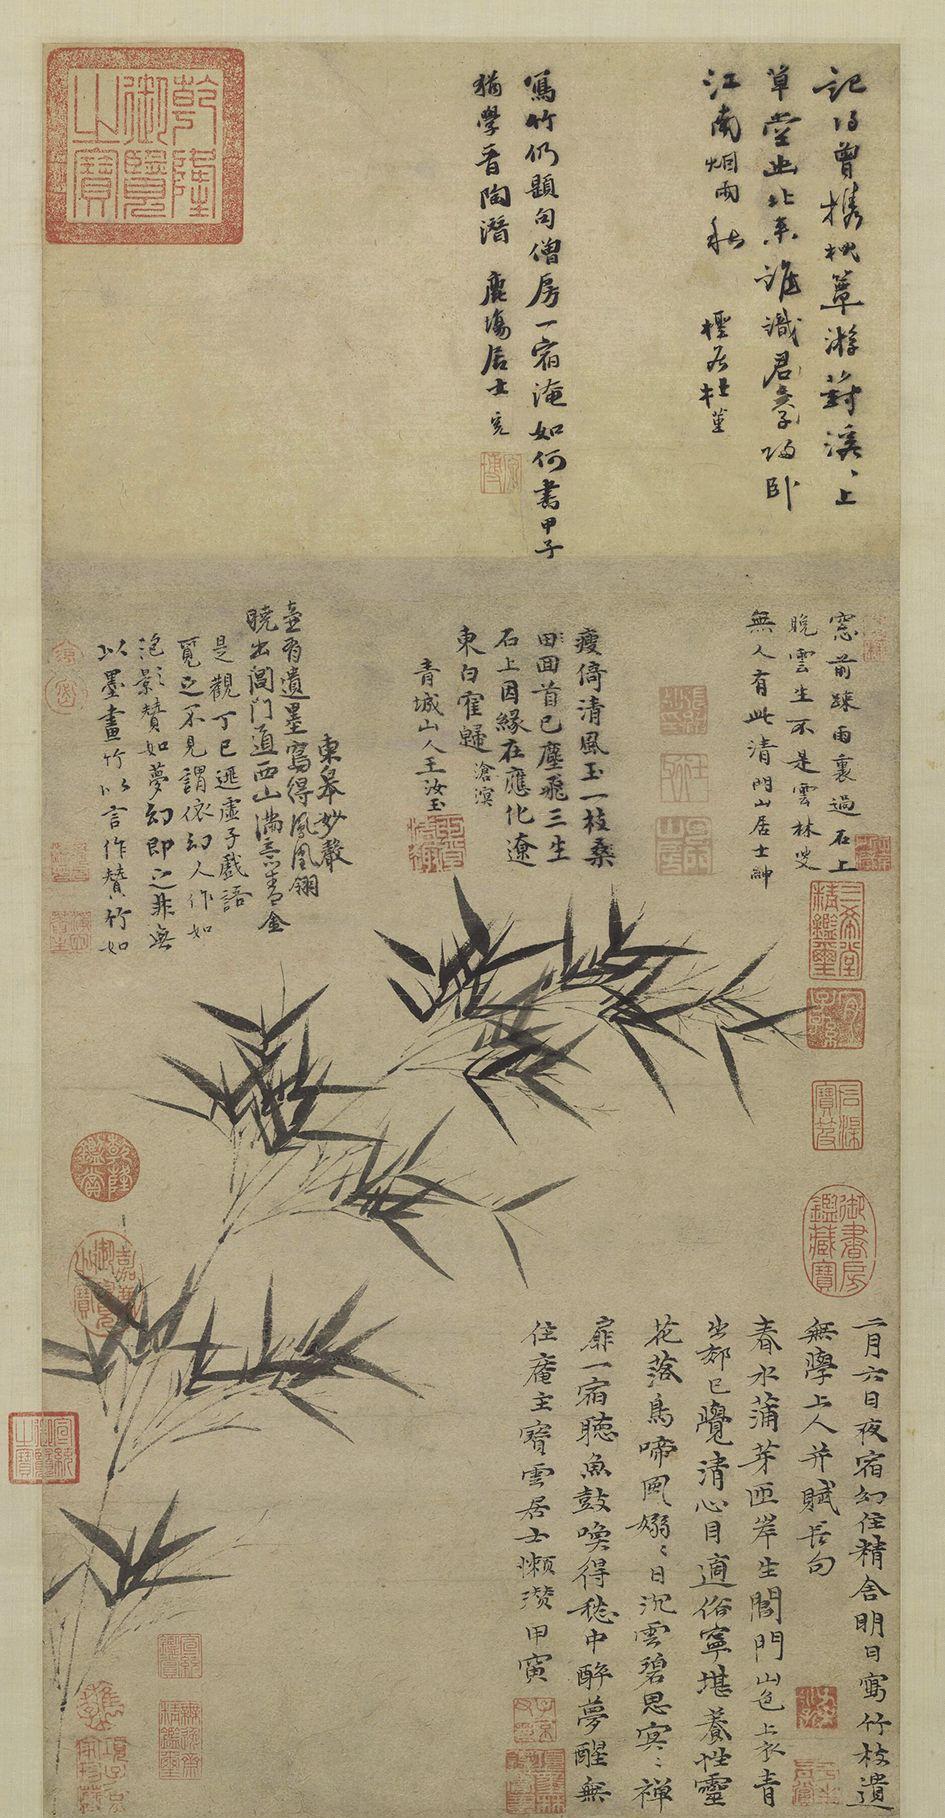 記得曾携枕簟游溪、上
草堂幽北來誰識君歸臥
江南烟雨秋 檉居杜堇
寫竹仍題句僧房一宿淹如何書甲子
猶學晉陶潛 鹿場居士完
乾隆御覽之寶
窓前疎雨裏過石上
晚雲生不是雲林叟
無人有此清門山居士紳
瘦倚清風玉一枝桑
田回首已塵飛三生
石上因緣在應化遼
東白雀歸 滄溟
青城山人王汝玉
曉出閶門道西山滿意青金
壺有遺墨寫得鳳凰翎
東皋妙聲
以墨畫竹以言作贊、竹如
泡影贊如夢幻即之非無
覓之不見謂依幻人作如
是觀丁巳遯虛子戲語
三希堂精鑑璽
宜子孫
石渠寶笈
御書房鑑藏寶
乾隆鑑賞
嘉慶御覽之寶
二月六日夜宿幻住精舍明日寫竹枝遺
無學上人并賦長句
春水蒲芽匝岸生閶門山色上衣青
出郊已覺清心目適俗寧堪養性靈
花落鳥啼風嫋、日沉雲碧思冥、禪
扉一宿聽魚鼓喚得愁中醉夢醒無
住庵主寶雲居士懶瓚甲寅
宣統御覽之寶
宣統鑑賞
無逸齋精鑑璽